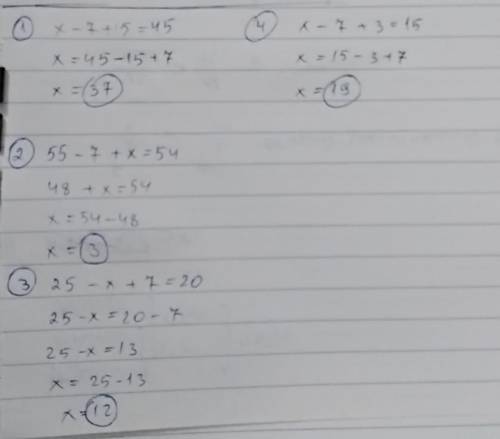 ① x - 7 + 15 = 45
x = 45 - 15 + 7
x = 37
② 55 - 7 + x = 54
48 + x = 54
x = 54 - 48
x = 3
③ 25 - x + 7 = 20
25 - x = 20 - 7
25 - x = 13
x = 25 - 13
x = 12
④ x - 7 + 3 = 15
x = 15 - 3 + 7
x = 19